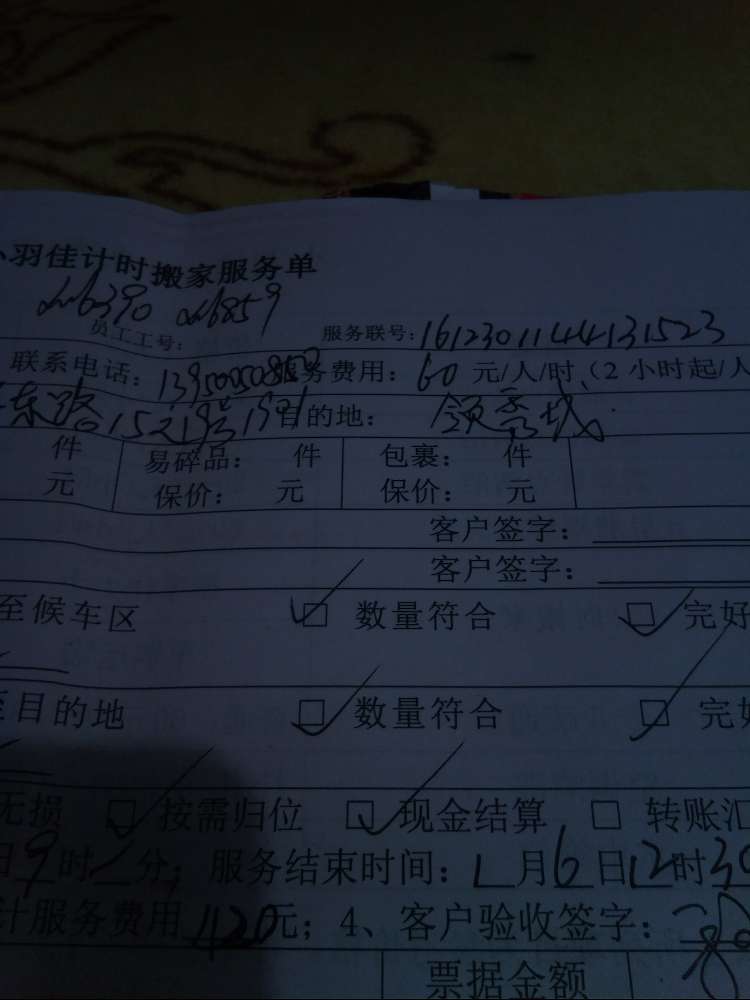 羽佳计时搬家服务单
员工工号: 服务联号: 161230114413​1523
联系电话: 服务费用: 60 元/人/时、(2 小时起/人
东路 目的地: 领秀城
件 易碎品: 件 包裹: 件
元 保价: 元 保价: 元
客户签字:
客户签字:
至候车区 ☑ 数量符合 ☑ 完好
至目的地 ☑ 数量符合 ☑ 完好
无损 ☑ 按需归位 ☑ 现金结算 □ 转账汇
日9时 分; 服务结束时间: 1月6日12时30
计服务费用 420元; 4、客户验收签字:
票据金额